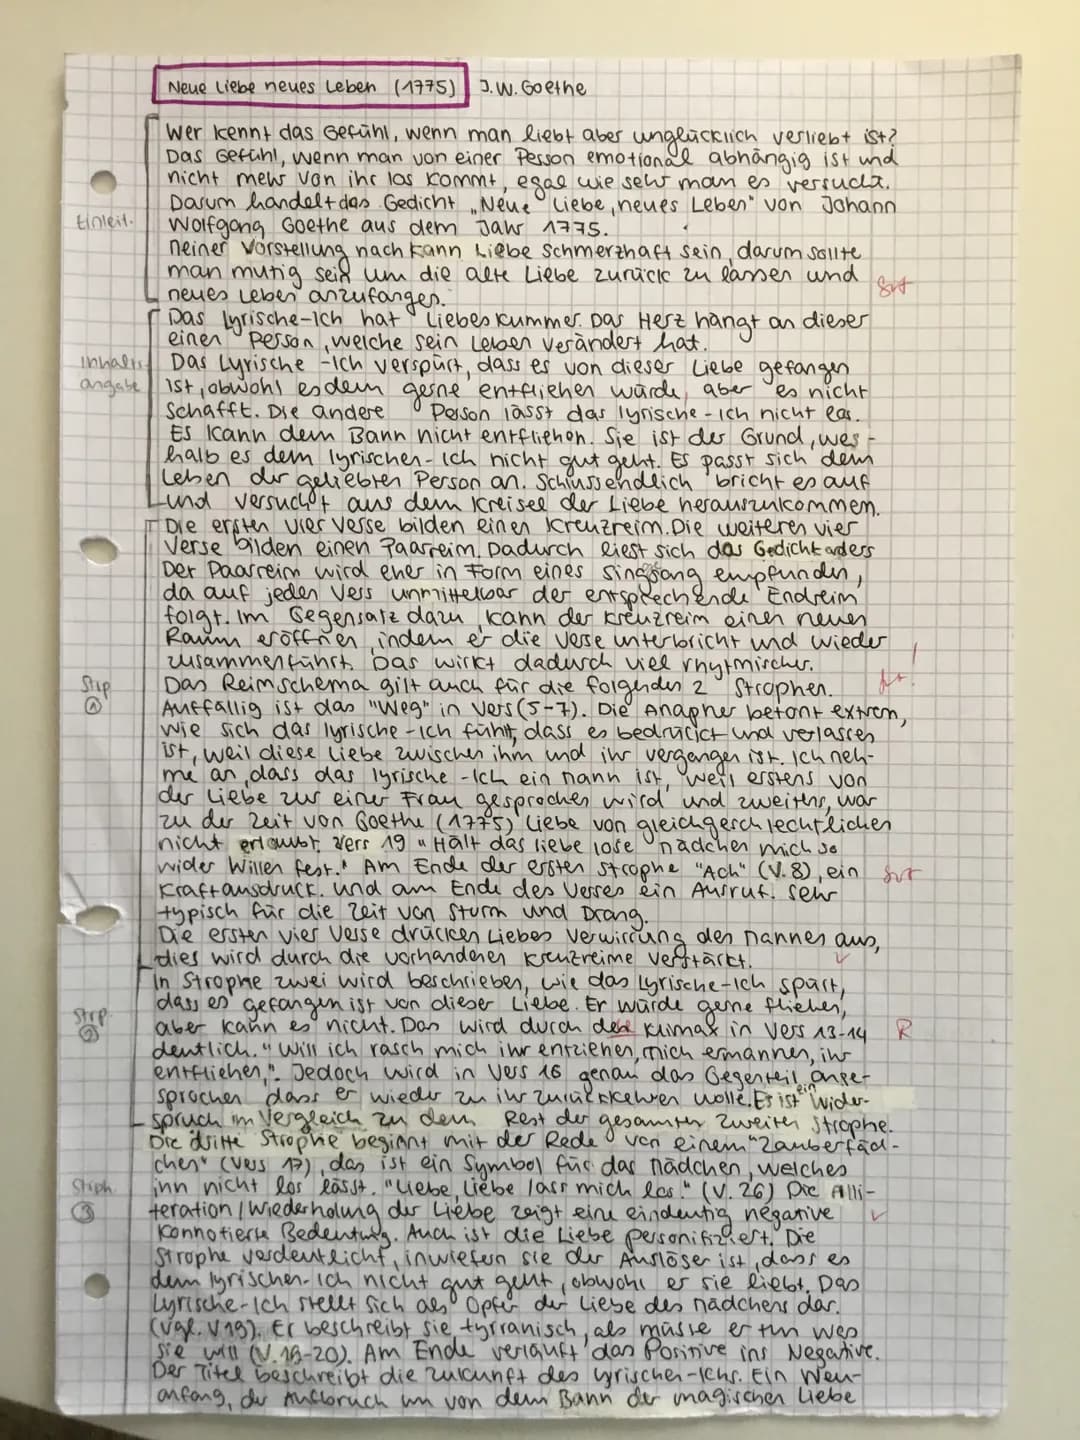 Neue Liebe neues Leben (1775) J.W. Goethe
Wer kennt das Gefühl, wenn man liebt aber unglücklich verliebt ist?
Das Gefühl, wenn man von einer Person emotional abhängig ist und
nicht mehr von ihr los kommt, egal wie sehr man es versucht.
Darum handelt das Gedicht „Neue Liebe, neues Leben" von Johann
Einleit. Wolfgang Goethe aus dem Jahr 1775.
Meiner Vorstellung nach kann Liebe schmerzhaft sein, darum sollte
man mutig sein um die alte Liebe zurück zu lassen und
neues Leben anzufangen. gut
Das lyrische-Ich hat Liebeskummer. Das Herz hängt an dieser
einen Person, welche sein Leben verändert hat.
Inhalts Das Lyrische-Ich verspürt, dass es von dieser Liebe gefangen
angabe ist, obwohl es dem gerne entfliehen würde, aber es nicht
schafft. Die andere Person lässt das lyrische-Ich nicht los.
Es kann dem Bann nicht entfliehen. Sie ist der Grund, wes-
halb es dem lyrischen-Ich nicht gut geht. Es passt sich dem
Leben der geliebten Person an. Schlussendlich bricht es auf
und versucht aus dem Kreisel der Liebe herauszukommen.
Die ersten vier Verse bilden einen Kreuzreim. Die weiteren vier
Verse bilden einen Paarreim. Dadurch liest sich das Gedicht anders
Der Paarreim wird eher in Form eines Singsang empfunden,
da auf jeden Vers unmittelbar der entsprechende Endreim
folgt. Im Gegensatz dazu, kann der Kreuzreim einen neuen
Raum eröffnen, indem er die Verse unterbricht und wieder
zusammenführt. Das wirkt dadurch viel rhytmischer.
Strp ① Das Reimschema gilt auch für die folgenden 2 Strophen.
Auffällig ist das "Weg" in Vers (5-7). Die Anapher betont extrem,
wie sich das lyrische-Ich fühlt, dass es bedrückt und verlassen
ist, weil diese Liebe zwischen ihm und ihr vergangen ist. Ich neh-
me an, dass das lyrische-Ich ein Mann ist, weil erstens von
der Liebe zur einer Frau gesprochen wird und zweitens, war
zu der Zeit von Goethe (1775) Liebe von gleichgeschlechtlichen
nicht erlaubt, Vers 19 "Hält das liebe lose Mädchen mich so
wider Willen fest." Am Ende der ersten Strophe "Ach" (V.8), ein gut
Kraftausdruck. und am Ende des Verses ein Ausruf. Sehr
typisch für die Zeit von Sturm und Drang.
Die ersten vier Verse drücken Liebes Verwirrung des Mannes aus,
dies wird durch die vorhandenen Kreuzreime verstärkt.
In Strophe zwei wird beschrieben, wie das Lyrische-Ich spürt,
dass es gefangen ist von dieser Liebe. Er würde gerne fliehen,
Strp. ② aber kann es nicht. Das wird durch die Klimax in Vers 13-14 R
deutlich. "Will ich rasch mich ihr entziehen, mich ermannen, ihr
entfliehen,". Jedoch wird in Vers 16 genau das Gegenteil ange-
sprochen dass er wieder zu ihr zurückkehren wolle. Es ist ein Wider-
spruch im Vergleich zu dem Rest der gesamten zweiten Strophe.
Die dritte Strophe beginnt mit der Rede von einem "Zauberfäd-
chen" (Vers 17), das ist ein Symbol für das Mädchen, welches
Stroph. ③ ihn nicht los lässt. "Liebe, Liebe lass mich los." (V.26) Die Alli-
teration / Wiederholung der Liebe zeigt eine eindeutig negative
Konnotierte Bedeutung. Auch ist die Liebe personifiziert. Die
Strophe verdeutlicht, inwiefern sie der Auslöser ist, dass es
dem lyrischen-Ich nicht gut geht, obwohl er sie liebt. Das
Lyrische-Ich stellt sich als Opfer der Liebe des Mädchens dar.
(vgl. V19). Er beschreibt sie tyrranisch, als müsse er tun was
sie will (V.19-20). Am Ende verläuft das Positive ins Negative.
Der Titel beschreibt die Zukunft des lyrischen-Ichs. Ein Neu-
anfang, der Aufbruch um von dem Bann der magischen Liebe